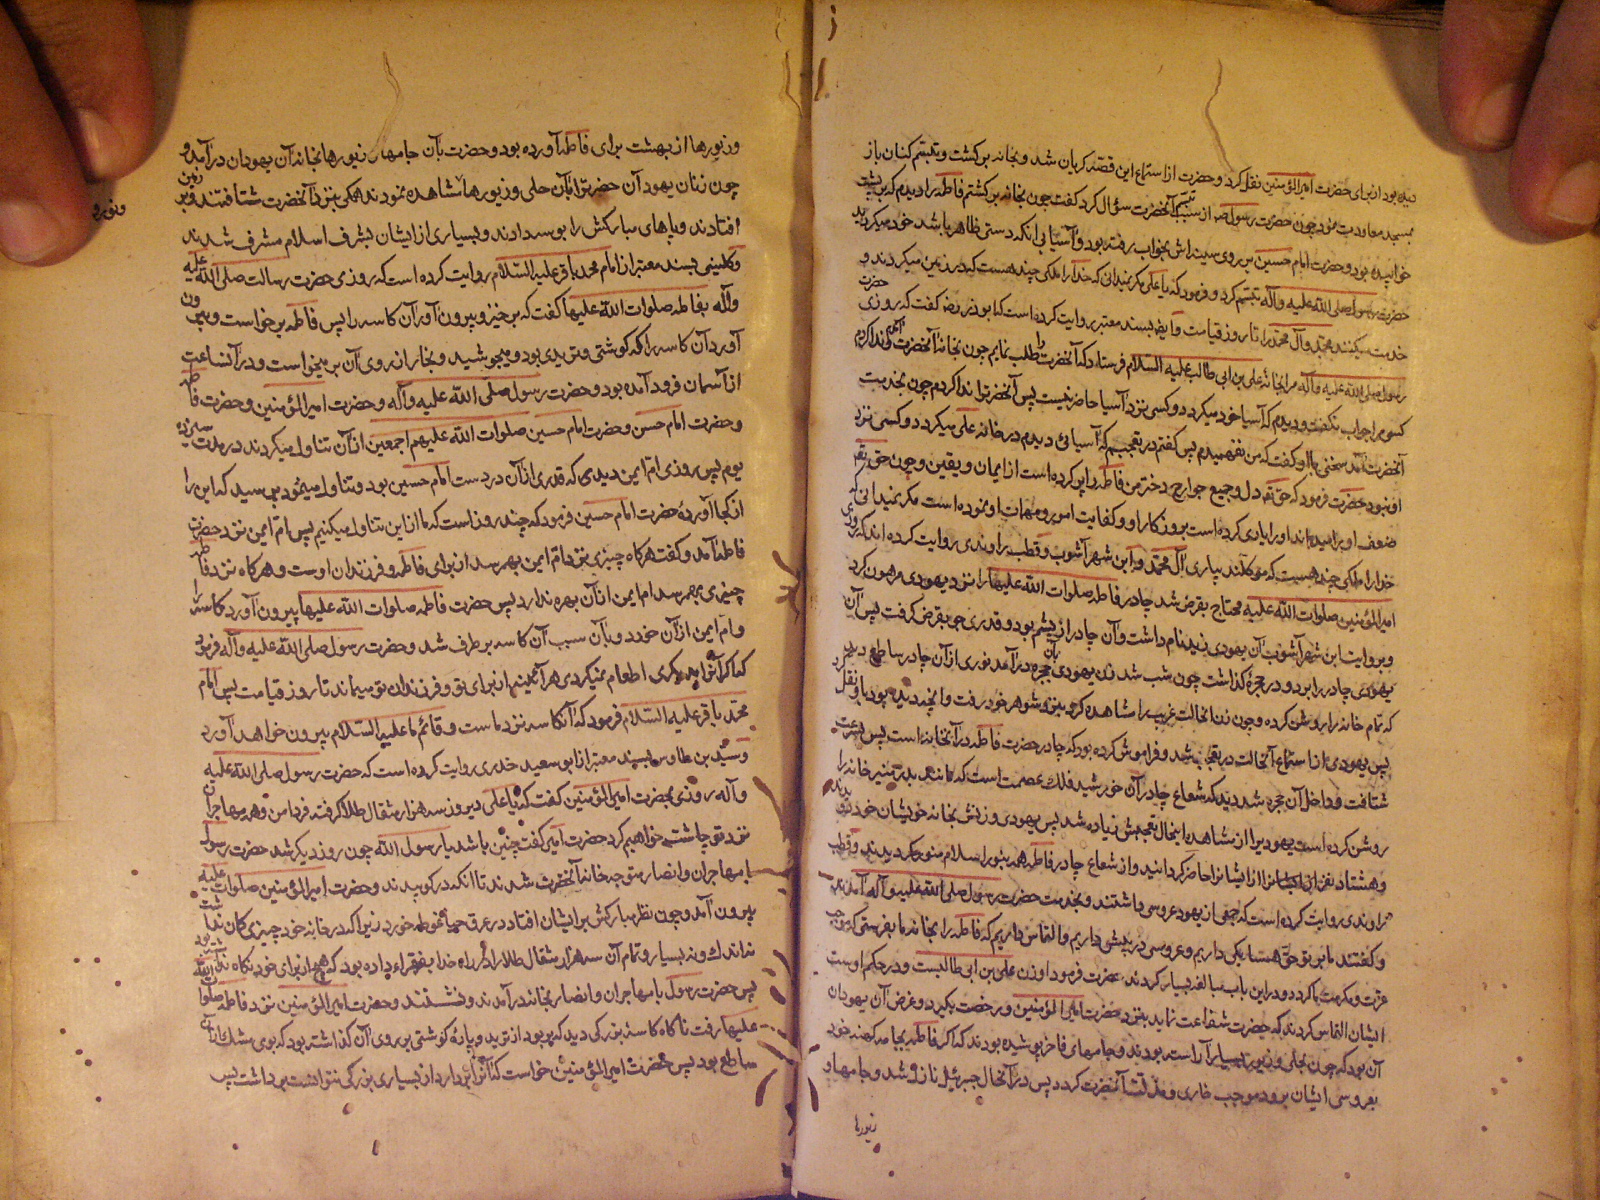 دیده بود از برای حضرت امیرالمؤمنین نقل کرد و حضرت از استماع این قصه گریان شد و بخانه برگشت و تبسم کنان باز
بمسجد معاودت نمود چون حضرت رسول ص از سبب تبسم آنحضرت سؤال کرد گفت چون بخانه برگشتم فاطمه را دیدم که بر پشت
خوابیده بود و حضرت امام حسین بر روی سینه‌اش بخواب رفته بود و آسیا بی آنکه دستی ظاهر باشد خود میگردید
حضرت رسول صلی الله علیه وآله تبسم کرد و فرمود که یا علی مگر نمیدانی که خدا را ملکی چند هست که در زمین میگردند و
خدمت میکنند محمد و آل محمد را تا روز قیامت و ایضا بسند معتبر روایت کرده است که ابوذر رض گفت که روزی حضرت
رسول صلی الله علیه وآله مرا بخانه علی بن ابی طالب علیه السلام فرستاد که آنحضرت را طلب نمایم چون بخانه آنحضرت آمدم و ندا کردم
کسی مرا جواب نگفت و دیدم که آسیا خود میگردد و کسی نزد آسیا حاضر نیست پس آنحضرت را ندا کردم چون بخدمت
آنحضرت آمد سخنی با او گفت که من نفهمیدم پس گفتم در تعجبم که آسیائی دیدم در خانه علی میگردد و کسی نزد
او نبود حضرت فرمود که حق تعالی دل و جمیع جوارح دختر من فاطمه را پر کرده است از ایمان و یقین و چون حق تعالی
ضعف او را میداند او را یاری کرده است بر روزگار او و کفایت امور و مهمات او نموده است مگر نمیدانی که
خدا را ملکی چند هست که موکلند بیاری آل محمد و ابن شهر آشوب و قطب راوندی روایت کرده اند که روزی
امیرالمؤمنین صلوات الله علیه محتاج بقرض شد چادر فاطمه صلوات الله علیها را نزد یهودی مرهون کرد
و بروایت ابن شهر آشوب آن یهودی زید نام داشت و آن چادر از پشم بود و قدری جو بقرض گرفت پس آن
یهودی چادر را برد و در حجره گذاشت چون شب شد زن یهودی بآن حجره درآمد نوری از آن چادر ساطع دید
که تمام خانه را روشن کرده و چون زن انحالت غریب را مشاهده کرد بنزد شوهر خود رفت و آنچه دیده بود باو نقل کرد
پس یهودی از استماع آنحالت در تعجب شد و فراموش کرده بود که چادر حضرت فاطمه در آنخانه است پس بسرعت
شتافت و داخل آن حجره شد دید که شعاع چادر آن خورشید فلک عصمت است که مانند بدر منیر خانه را
روشن کرده است یهودی را از مشاهده اینحال تعجبش زیاده شد پس یهودی و زنش بخانه خویشان خود دویدند
و هشتاد نفر از ایشان را حاضر گردانیدند و از شعاع چادر فاطمه همه بنور اسلام منور گردیدند و قطب
راوندی روایت کرده است که جمعی از یهود عروسی داشتند و بخدمت حضرت رسول صلی الله علیه وآله آمدند
و گفتند ما بر تو حق همسایگی داریم و عروسی در پیش داریم و التماس داریم که فاطمه را بخانه ما بفرستی که موجب
عزت و مکرمت ما گردد و در این باب مبالغه بسیار کردند حضرت فرمود او زن علی بن ابی طالبست و در حکم اوست
ایشان التماس کردند که حضرت شفاعت نماید بنزد حضرت امیرالمؤمنین و رخصت بگیرد و غرض آن یهودان
آن بود که چون بحلی و زیور بسیار آراسته بودند و جامهای فاخر پوشیده بودند که اگر فاطمه بجامه کهنه خود
بعروسی ایشان برود موجب خاری و مذلت آنحضرت گردد پس در آنحال جبرئیل نازل شد و جامها و
زیورها
وزیورها از بهشت برای فاطمه آورده بود و حضرت بآن جامها و زیورها بخانه آن یهودان درآمد و
چون زنان یهود آن حضرت را بآن حلی و زیورها مشاهده نمودند همگی بنزد آنحضرت شتافتند و بر زمین
افتادند و پاهای مبارکش را بوسه دادند و بسیاری از ایشان بشرف اسلام مشرف شدند
و کلینی بسند معتبر از امام محمد باقر علیه السلام روایت کرده است که روزی حضرت رسالت صلی الله علیه
وآله بفاطمه صلوات الله علیها گفت که برخیز و بیرون آور آن کاسه را پس فاطمه برخواست و بیرون
آورد آن کاسه را که گوشتی و تریدی بود و میجوشید و بخار از روی آن بر میخواست و در آنساعت
از آسمان فرود آمده بود و حضرت رسول صلی الله علیه وآله و حضرت امیرالمؤمنین و حضرت فاطمه
و حضرت امام حسن و حضرت امام حسین صلوات الله علیهم اجمعین از آن تناول میکردند در مدت سیزده
یوم پس روزی ام ایمن دیدی که قدری از آن در دست امام حسین بود و تناول مینمود پرسید که این را
از کجا آورده حضرت امام حسین فرمود که چند روز است که ما از این تناول میکنیم پس ام ایمن نزد حضرت
فاطمه آمد و گفت هرگاه چیزی نزد ام ایمن بهم رسد از برای فاطمه و فرزندان اوست و هرگاه نزد فاطمه
چیزی بهم رسد ام ایمن از آن بهره ندارد پس حضرت فاطمه صلوات الله علیها بیرون آورد کاسه را
و ام ایمن از آن خورد و بآن سبب آن کاسه بر طرف شد و حضرت رسول صلی الله علیه وآله فرمود
که اگر آنرا بدیگری اطعام نمیکردی هر آینه از برای تو و فرزندان تو میماند تا روز قیامت پس امام
محمد باقر علیه السلام فرمود که آن کاسه نزد ماست و قائم ما علیه السلام بیرون خواهد آورد
و سید بن طاوس بسند معتبر از ابو سعید خدری روایت کرده است که حضرت رسول صلی الله علیه
وآله روزی بحضرت امیرالمؤمنین گفت که یا علی دیروز سه هزار مثقال طلا گرفته فردا من و همه مهاجران
نزد تو چاشت خواهیم کرد حضرت امیر گفت چنین باشد یا رسول الله چون روز دیگر شد حضرت رسول
با مهاجران و انصار متوجه خانه آنحضرت شدند تا آنکه در کوبیدند و حضرت امیرالمؤمنین صلوات الله علیه
بیرون آمد و چون نظر مبارکش بر ایشان افتاد در عرق حیا غوطه خورد زیرا که در خانه خود چیزی گمان نداشت
نه اندک و نه بسیار و تمام آن سه هزار مثقال طلا را در راه خدا بفقراء داده بود که هیچ از برای خود نگاه نداشته بود
پس حضرت رسول با مهاجران و انصار بخانه درآمدند و نشستند و حضرت امیرالمؤمنین نزد فاطمه صلوات الله
علیها رفت ناگاه کاسه بزرگی دید که پر بود از ترید و پاره گوشتی بر روی آن گذاشته بود که بوی مشک از آن
ساطع بود پس حضرت امیرالمؤمنین خواست که آنرا بردارد از بسیاری بزرگی نتوانست برداشت پس